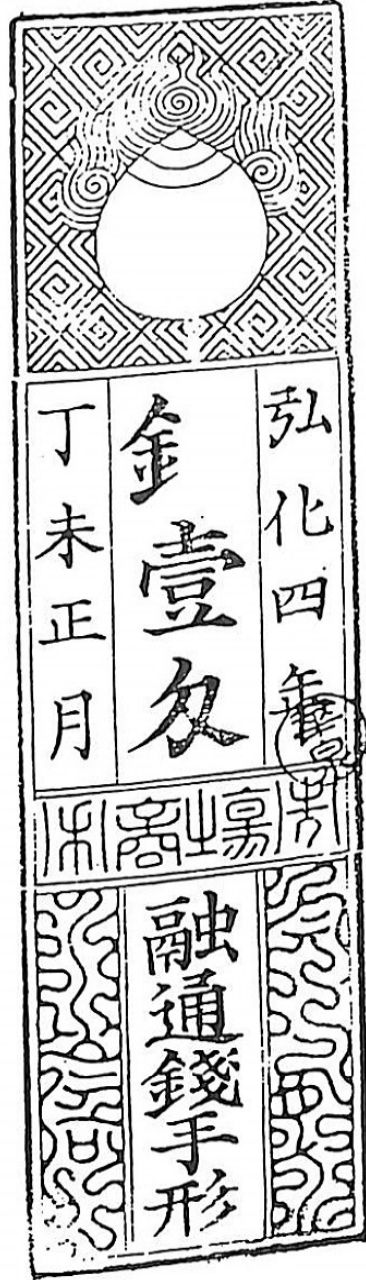 弘化四年
金壹匁
丁未正月
融通錢手形